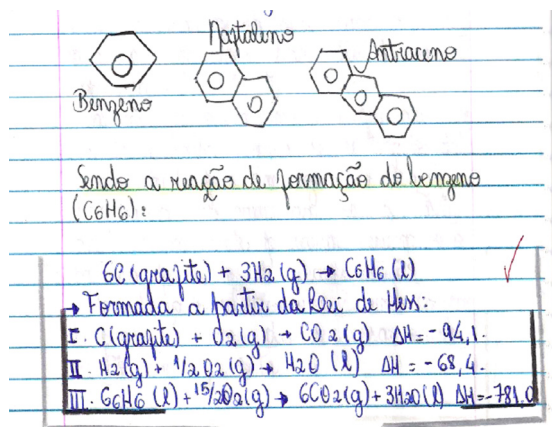 Naftaleno
Antraceno
Benzeno
Sendo a reação de formação do benzeno
(C6H6):
6C(grafite) + 3H2(g) → C6H6(l)
→ Formada a partir da Lei de Hess:
I. C(grafite) + O2(g) → CO2(g) ΔH=-94,1.
II. H2(g) + 1/2O2(g) → H2O (l) ΔH = -68,4.
III. C6H6 (l) + 15/2O2(g) → 6CO2(g) + 3H2O(l) ΔH=-781,0